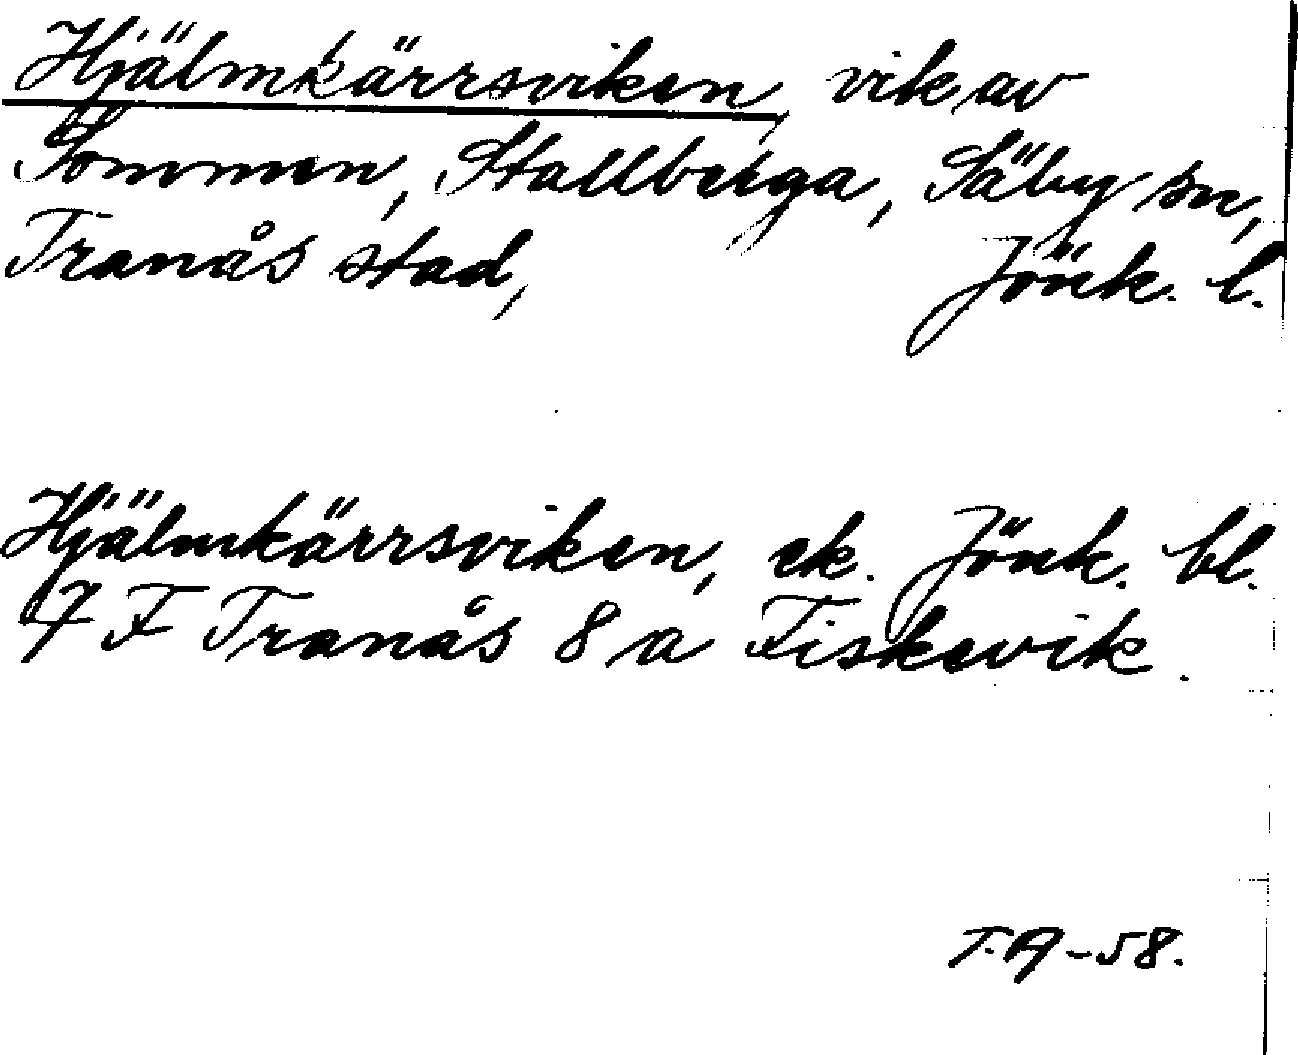 Hjälmkärrsviken, vik av
Sommen, Stallberga, Säby sn,
Tranås stad, Jönk. l.
Hjälmkärrsviken, ek. Jönk. bl.
7 F Tranås 8 a Fiskevik.
T.A-58.